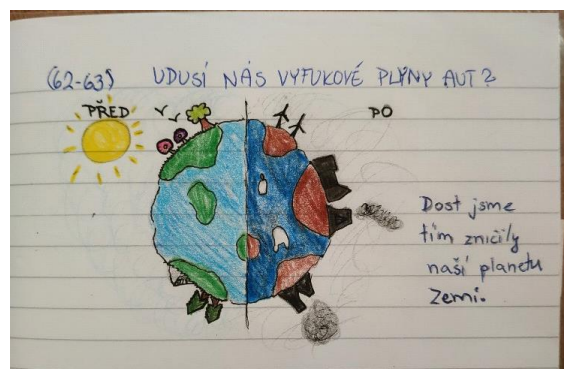 (62-63) UDUSÍ NÁS VYFUKOVÉ PLYNY AUT?
PŘED
PO
Dost jsme
tím zničily
naší planetu
Zemi.